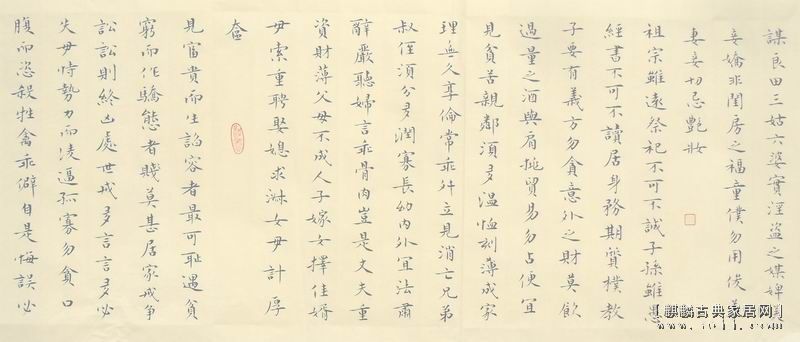 謀良田三姑六婆實淫盜之媒婢
妾嬌非閨房之福童僕勿用俊美
妻妾切忌艷妝
祖宗雖遠祭祀不可不誠子孫雖愚
經書不可不讀居身務期質樸教
子要有義方勿貪意外之財莫飲
過量之酒與肩挑貿易勿占便宜
見貧苦親鄰須多溫恤刻薄成家
理無久享倫常乖舛立見消亡兄弟
叔侄須分多潤寡長幼內外宜法肅
辭嚴聽婦言乖骨肉豈是丈夫重
資財薄父母不成人子嫁女擇佳婿
毋索重聘娶媳求淑女毋計厚
奩
見富貴而生諂容者最可恥遇貧
窮而作驕態者賤莫甚居家戒爭
訟訟則終凶處世戒多言言多必
失毋恃勢力而凌逼孤寡勿貪口
腹而恣殺牲禽乖僻自是悔誤必
【麒麟古典家居网】